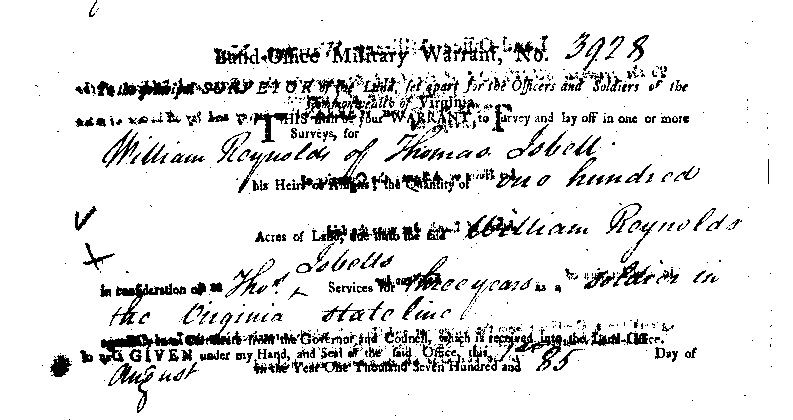 Land-Office Military Warrant, No. 3928
To the principal SURVEYOR of the Land, set apart for the Officers and Soldiers of the
Commonwealth of Virginia.
THIS shall be your WARRANT, to survey and lay off in one or more
Surveys, for
William Reynolds of Thomas Isbell
his Heirs or Assigns, the Quantity of one hundred
Acres of Land, due unto the said William Reynolds
in consideration of Thos. Isbells Services for three years as a soldier in
the Virginia state line
from the Governor and Council, which is received into the Land-Office.
GIVEN under my Hand, and Seal of the said Office, this Day of
August in the Year One Thousand Seven Hundred and 85